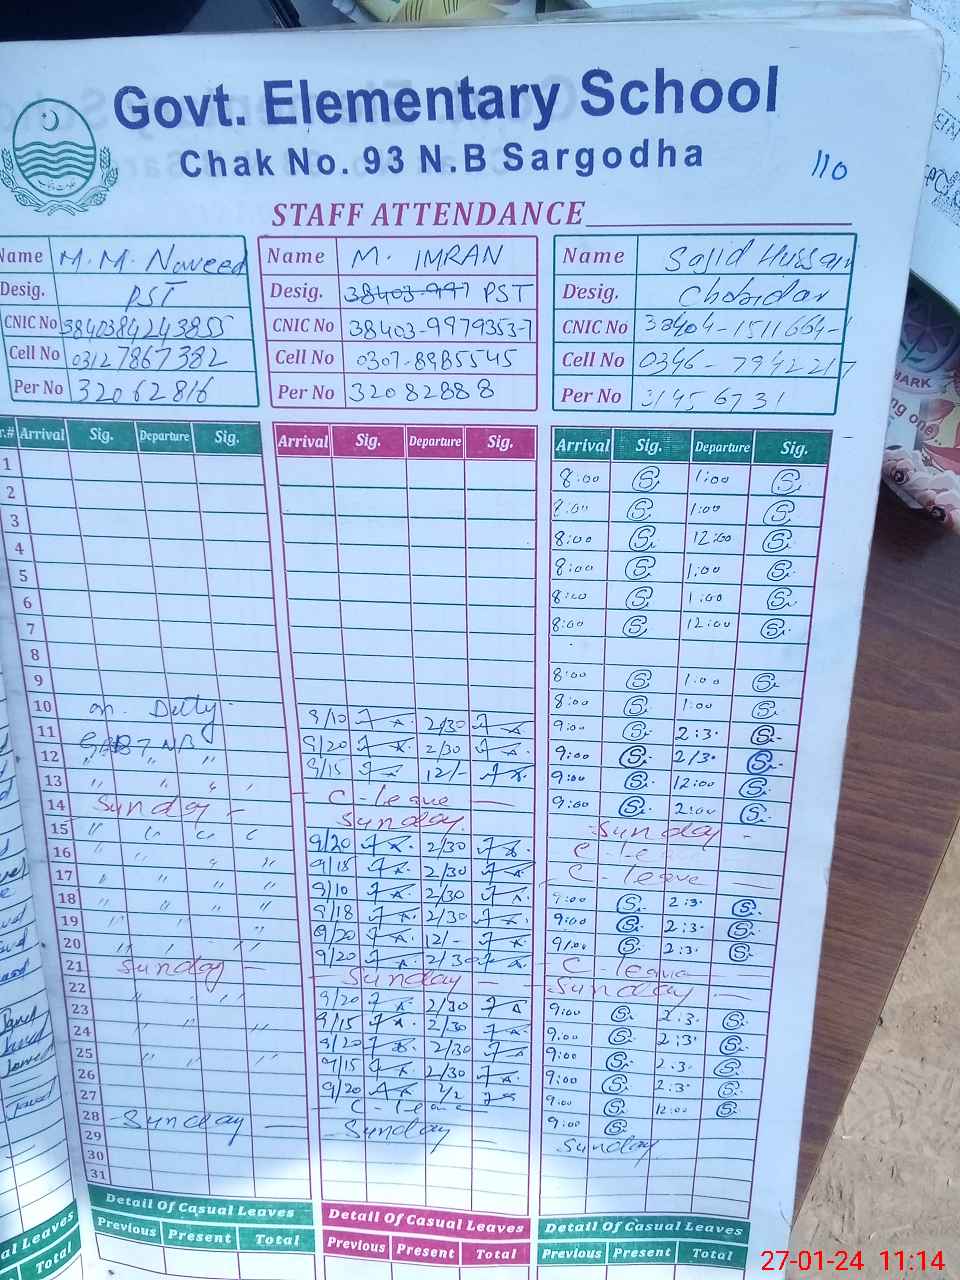 Govt. Elementary School
Chak No. 93 N.B Sargodha
110
STAFF ATTENDANCE
Name M. M. Naveed
Desig. PST
CNIC No 3840384243855
Cell No 0312 7867382
Per No 32062816
Name M. IMRAN
Desig. PST
CNIC No 38403-9979353-7
Cell No 0307-8985545
Per No 32082888
Name Sajid Hussain
Desig. Chokidar
CNIC No 38404-1511664-
Cell No 0346-7942217
Per No 31456731
Arrival Sig. Departure Sig. Arrival Sig. Departure Sig. Arrival Sig. Departure Sig.
1 8:00 1:00
2 8:00 1:00
3 8:00 12:00
4 8:00 1:00
5 8:00 1:00
6 8:00 12:00
7
8 8:00 1:00
9 8:00 1:00
10 on Duty 9/10 2/30 9:00 2:3.
11 9/20 2/30 9:00 2/3.
12 " " " 9/15 12/- 9:00 12:00
13 " " " " C-leave 9:00 2:00
14 Sunday Sunday Sunday
15 9/20 2/30 C-leave
16 9/18 2/30 C-leave
17 9/10 2/30 9:00 2:3.
18 9/18 2/30 9:00 2:3.
19 9/20 12/- 9/00 2:3.
20 9/20 2/30 C-leave
21 Sunday Sunday Sunday
22 9/20 2/30 9:00 2:3.
23 9/15 2/30 9:00 2:3.
24 9/20 2/30 9:00 2:3.
25 9/15 2/30 9:00 2:3.
26 9/20 9:00 12:00
27 C-leave 9:00
28 Sunday Sunday Sunday
29
30
31
Detail Of Casual Leaves Detail Of Casual Leaves Detail Of Casual Leaves
Previous Present Total Previous Present Total Previous Present Total
al Leaves
Total
MARK
ng one
27-01-24 11:14